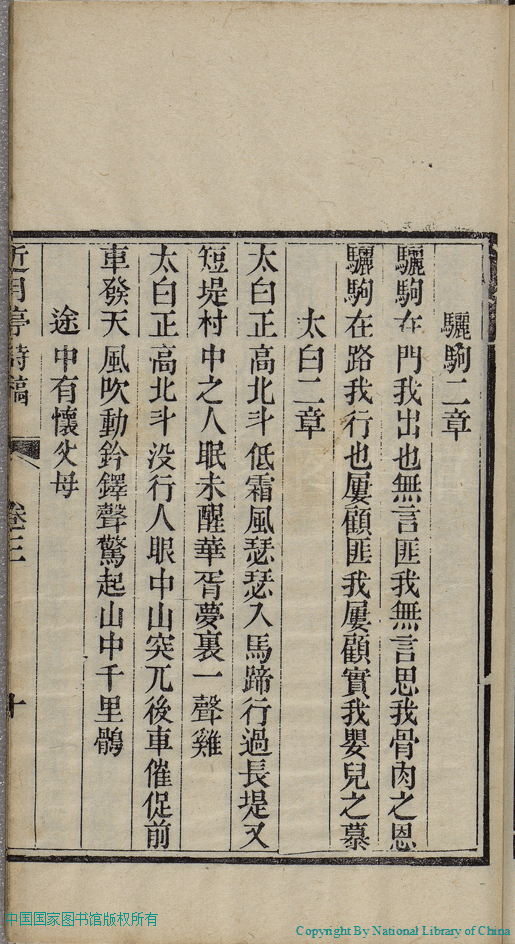 驪駒二章
驪駒在門我出也無言匪我無言思我骨肉之恩
驪駒在路我行也屢顧匪我屢顧實我嬰兒之慕
太白二章
太白正高北斗低霜風瑟瑟入馬蹄行過長堤又
短堤村中之人眠未醒華胥夢裏一聲雞
太白正高北斗没行人眼中山突兀後車催促前
車發天風吹動鈴鐸聲驚起山中千里鶻
途中有懷父母
近月亭詩稿
卷二
十
中国国家图书馆版权所有
Copyright By National Library of China